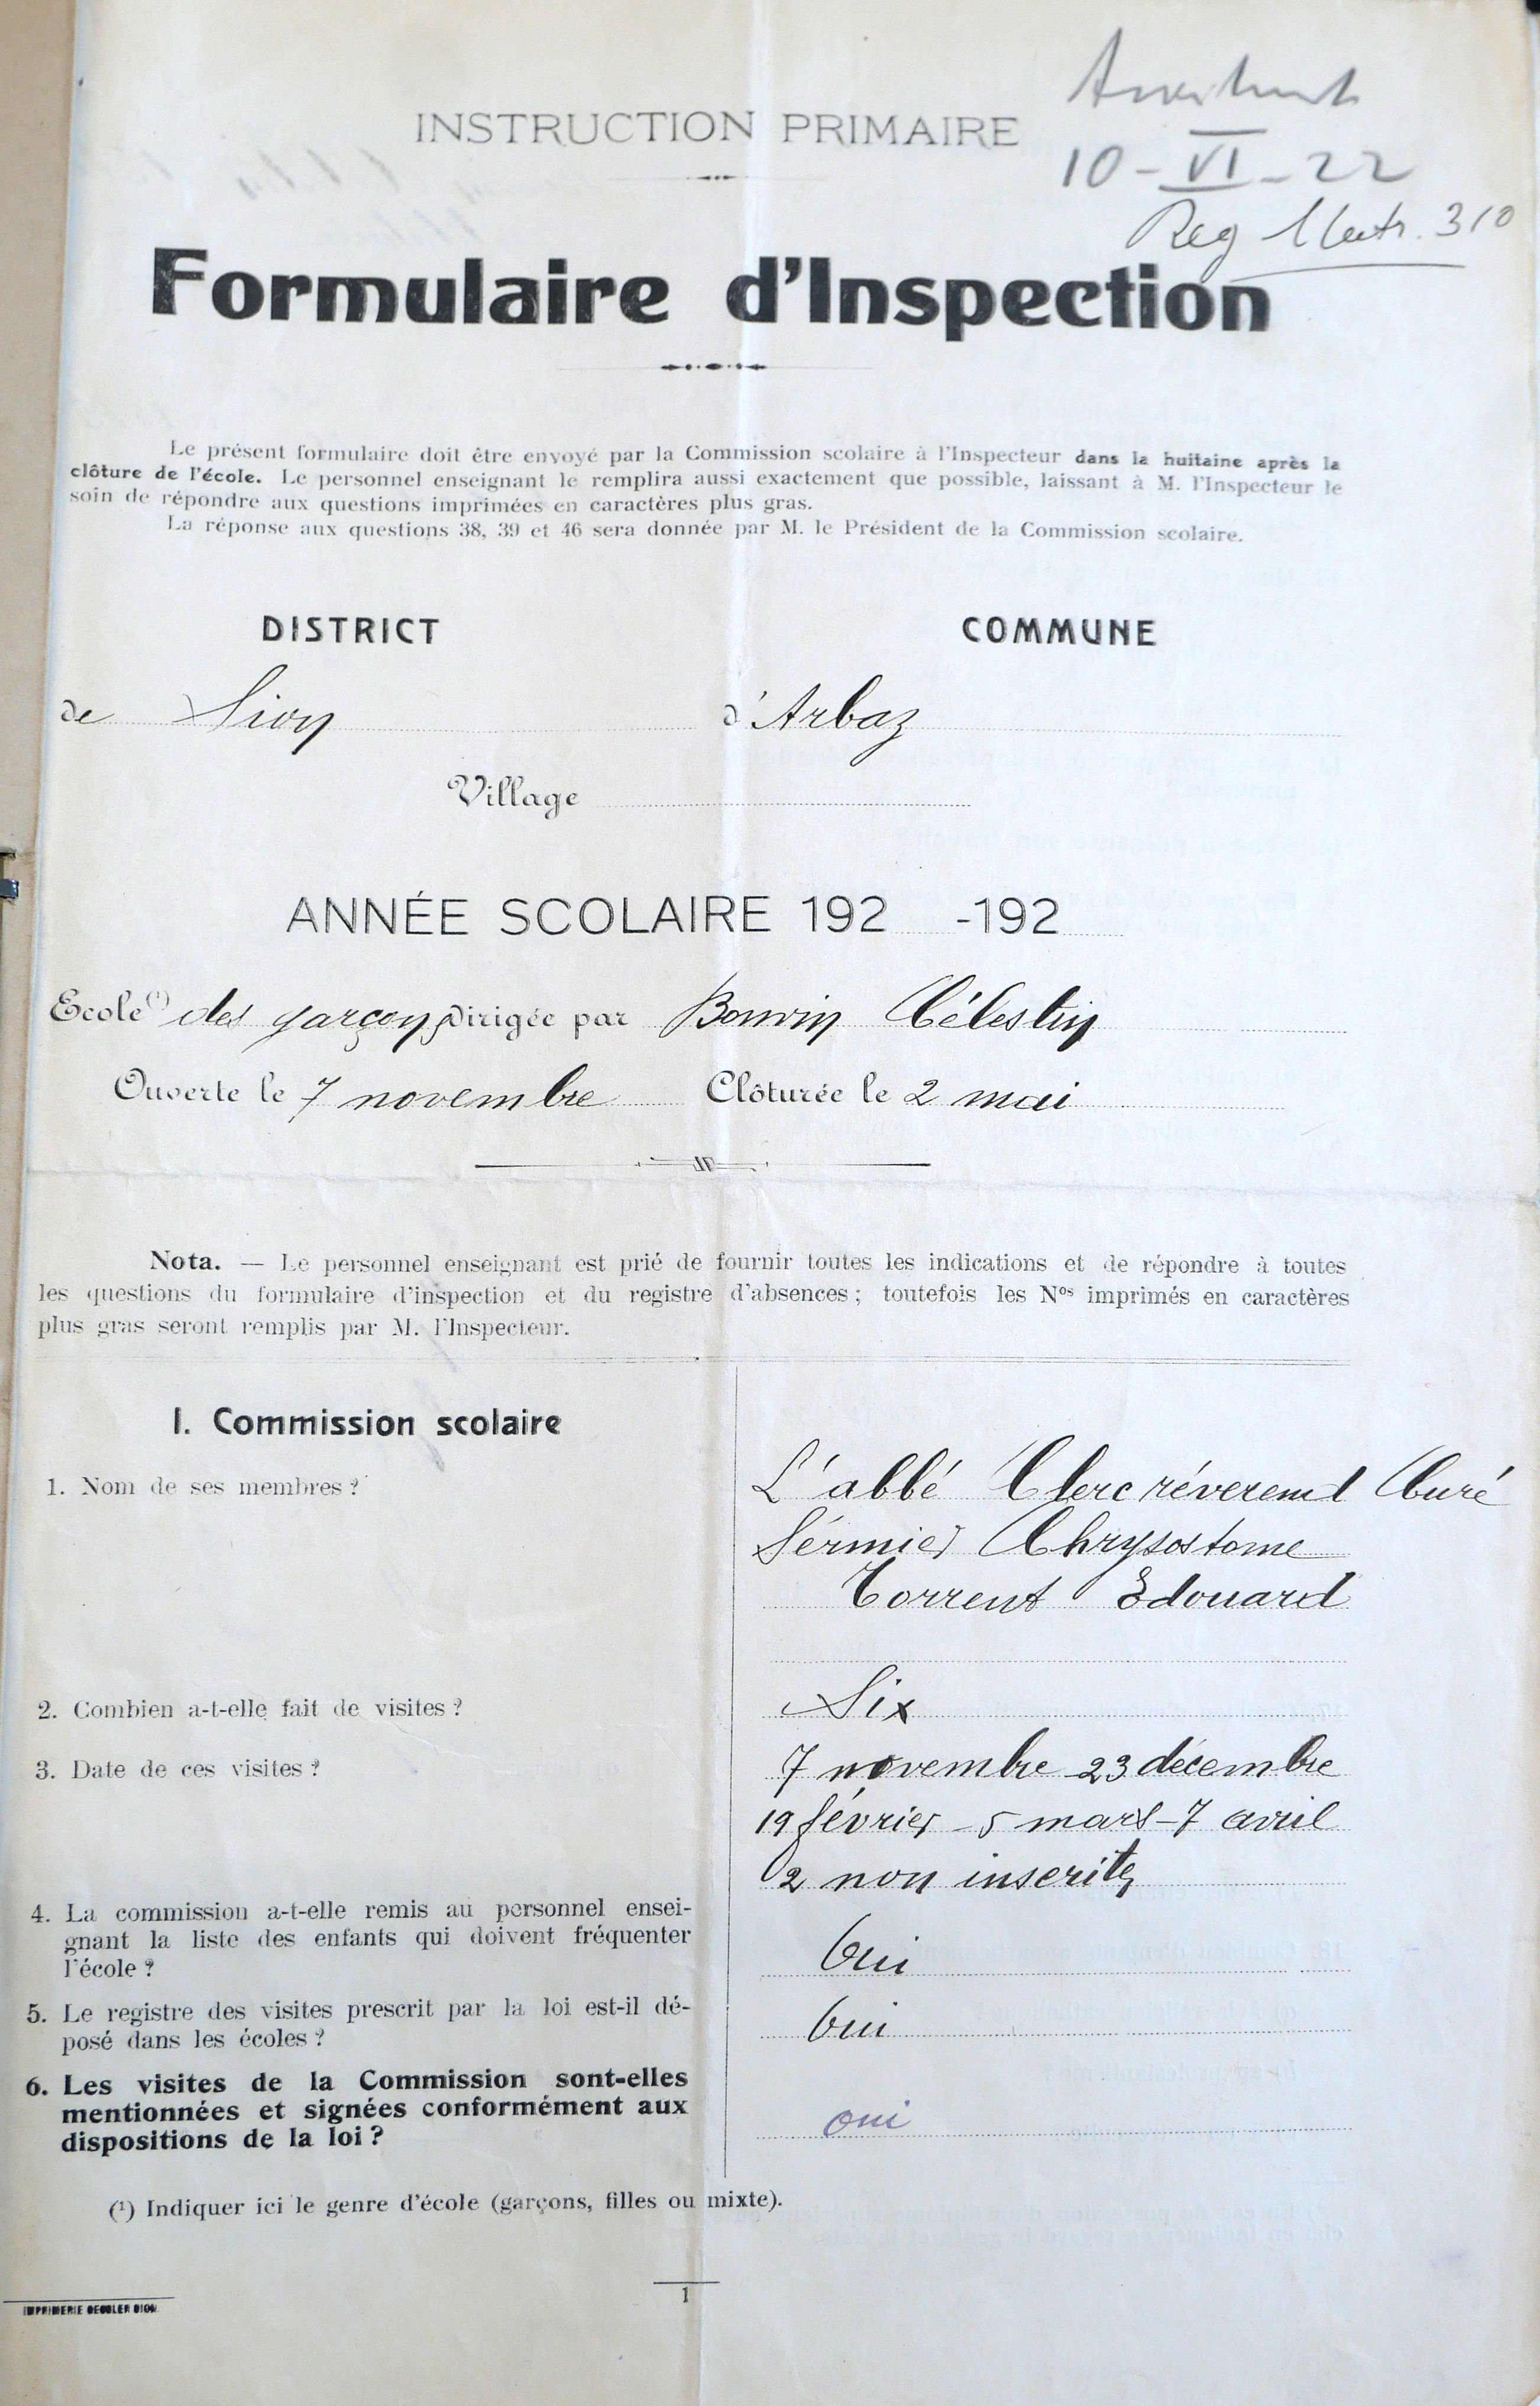 INSTRUCTION PRIMAIRE
10-VI-22
Reg 310
Formulaire d'Inspection
Le présent formulaire doit être envoyé par la Commission scolaire à l'Inspecteur dans la huitaine après la
clôture de l'école. Le personnel enseignant le remplira aussi exactement que possible, laissant à M. l'Inspecteur le
soin de répondre aux questions imprimées en caractères plus gras.
La réponse aux questions 38, 39 et 46 sera donnée par M. le Président de la Commission scolaire.
DISTRICT COMMUNE
de Sion d'Arbaz
Village
ANNÉE SCOLAIRE 192 -192
Ecole (1) des garçons Dirigée par Bonvin Célestin
Ouverte le 7 novembre Clôturée le 2 mai
Nota. — Le personnel enseignant est prié de fournir toutes les indications et de répondre à toutes
les questions du formulaire d'inspection et du registre d'absences ; toutefois les Nos imprimés en caractères
plus gras seront remplis par M. l'Inspecteur.
I. Commission scolaire
1. Nom de ses membres ?
L'abbé Clerc réverend Curé
Sermier Chrysostome
Torrent Edouard
2. Combien a-t-elle fait de visites ?
Six
3. Date de ces visites ?
7 novembre 23 décembre
19 février - 5 mars - 7 avril
2 non inscrites
4. La commission a-t-elle remis au personnel ensei-
gnant la liste des enfants qui doivent fréquenter
l'école ?
Oui
5. Le registre des visites prescrit par la loi est-il dé-
posé dans les écoles ?
Oui
6. Les visites de la Commission sont-elles
mentionnées et signées conformément aux
dispositions de la loi ?
oui
(1) Indiquer ici le genre d'école (garçons, filles ou mixte).
1
IMPRIMERIE GESSLER SION